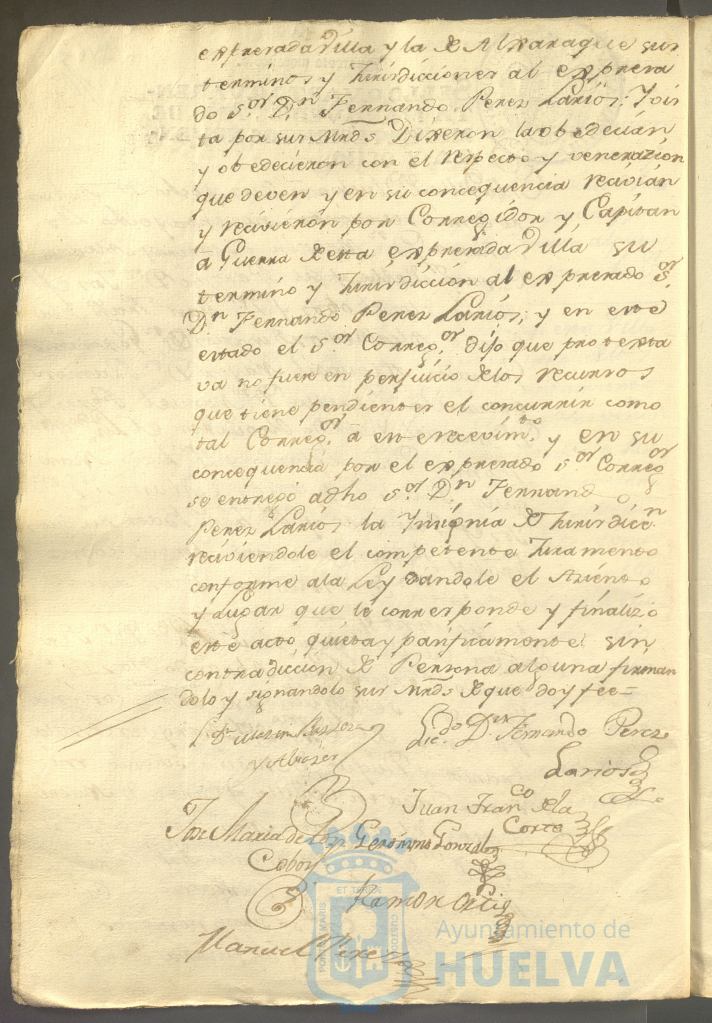 expresada Villa y la de Alxaraque sus
terminos y Jurisdicciones al expresa
do S.or D.n Fernando Perez Larios: Y vis
ta por sus Mrds Dixeron la obedecian
y obedecieron con el respecto y venerazion
que deven y en su concequencia recivian
y recivieron por Corregidor y Capitan
â Guerra de esta expresada Villa su
termino y Jurisdiccion al expresado S.or
D.n Fernando Perez Larios; y en este
estado el S.or Correg.or dijo que protexta
va no fuese en perjuicio de los recursos
que tiene pendientes el concurrir como
tal Correg.or â este recevim.to y en su
concequencia por el expresado S.or Correg.or
se entregó a dho S.or D.n Fernando
Perez Larios la Ynsignia de Jurisdicc.n
reciviendole el competente Juramento
conforme a la Ley dandole el Asiento
y Lugar que le corresponde y finalizó
este acto quieta y pacificamente sin
contradiccion de Persona alguna firman
dolo y signandolo sus Mrds de que doy fee=
Lic.do D.n Fernando Perez
Larios
Juan Fran.co de la
Corte
Jose Maria de los Geronimo Gonzalez
Cobos
Ramon
Manuel Perez
PORTUS MARIS ET TERRE CUSTODIA
Ayuntamiento de
HUELVA